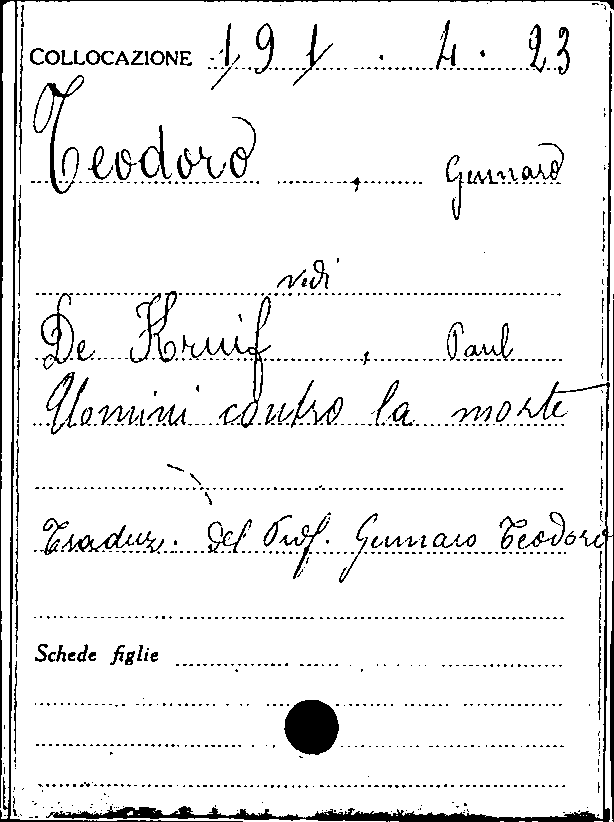 COLLOCAZIONE 191 . 4 . 23
Teodoro , Gennaro
vedi
De Kruif , Paul
Uomini contro la morte
Traduz. del Prof. Gennaro Teodoro
Schede figlie